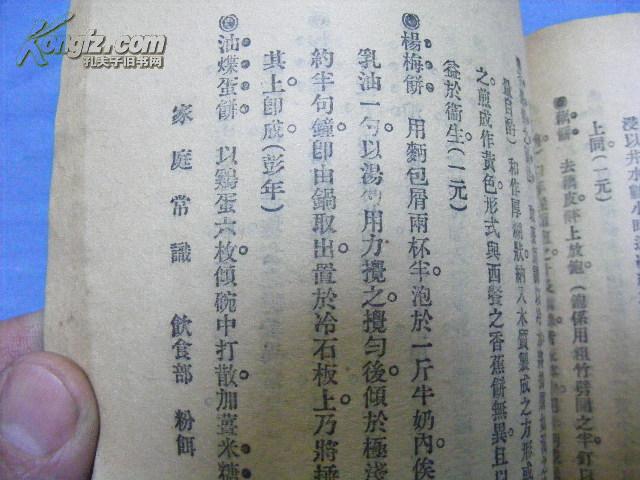 Kongfz.com
孔夫子旧书网
浸以井水
上同(一元)
去藕皮秤上放鉋(鉋係用粗竹劈開之半釘以
和作厚糊狀納入木質製成之方形或
之煎成作黃色形式與西餐之香蕉餅無異且以
益於衞生(一元)
◉楊梅餅 用麵包屑兩杯半泡於一斤牛奶內俟
乳油一勺以湯 用力攪之攪勻後傾於極淺
約半句鐘卽由鍋取出置於冷石板上乃將
其上卽成(彭年)
◉油煠蛋餅 以鷄蛋六枚傾碗中打散加薑米糖
家庭常識 飲食部 粉餌